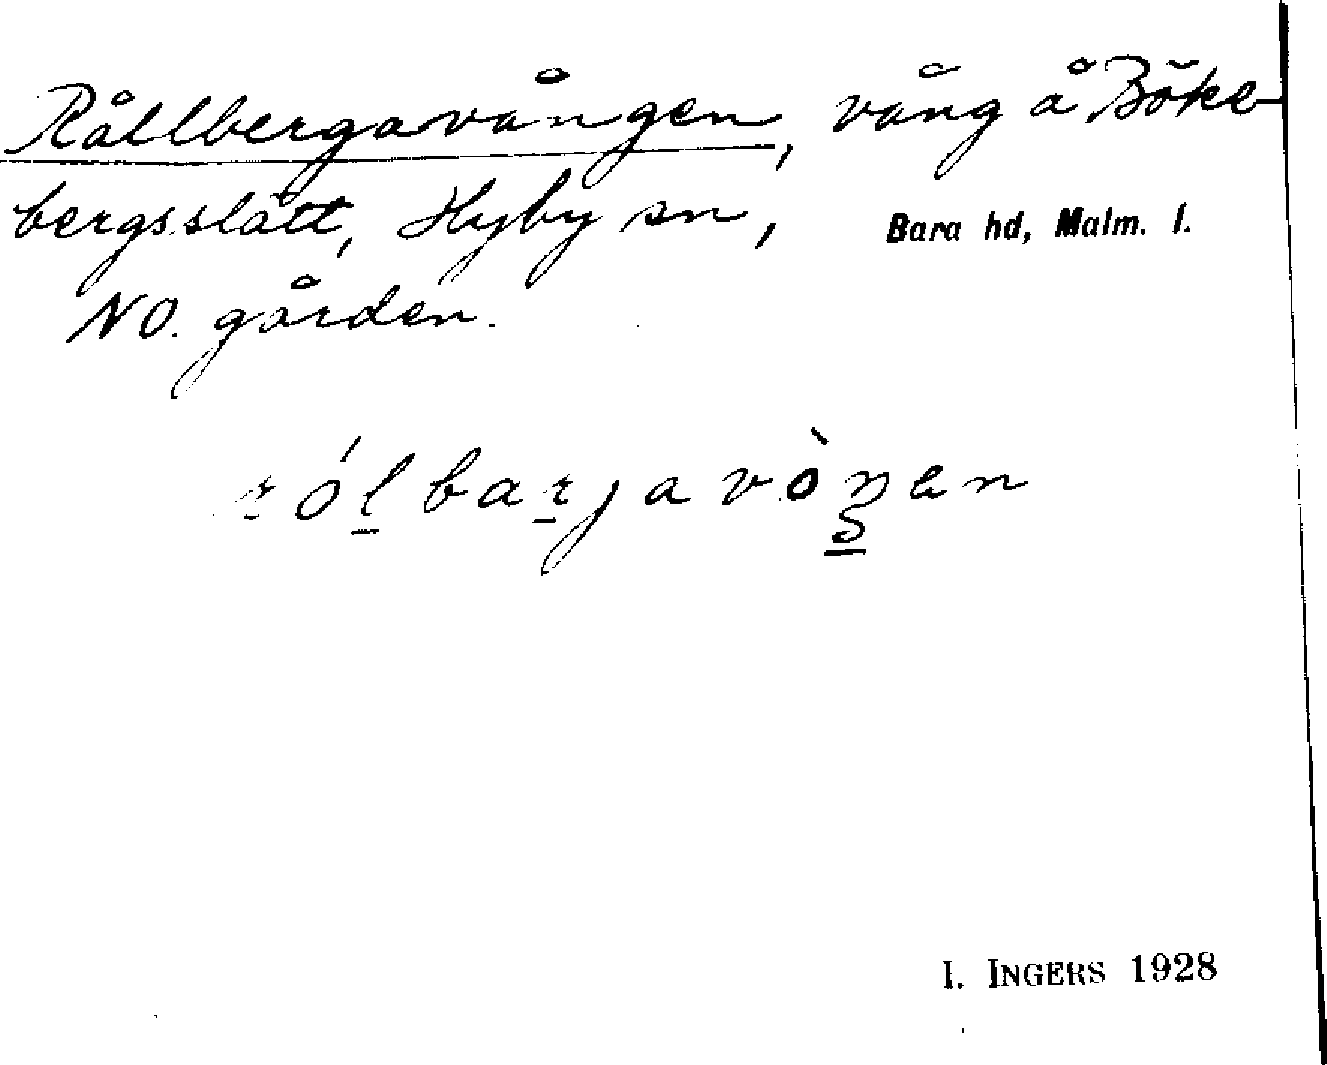 Rållbergavången, vång å Böke-
bergsslätt, Hyby sn, Bara hd, Malm. l.
NO. gården.
rólbarjavòŋen
I. INGERS 1928